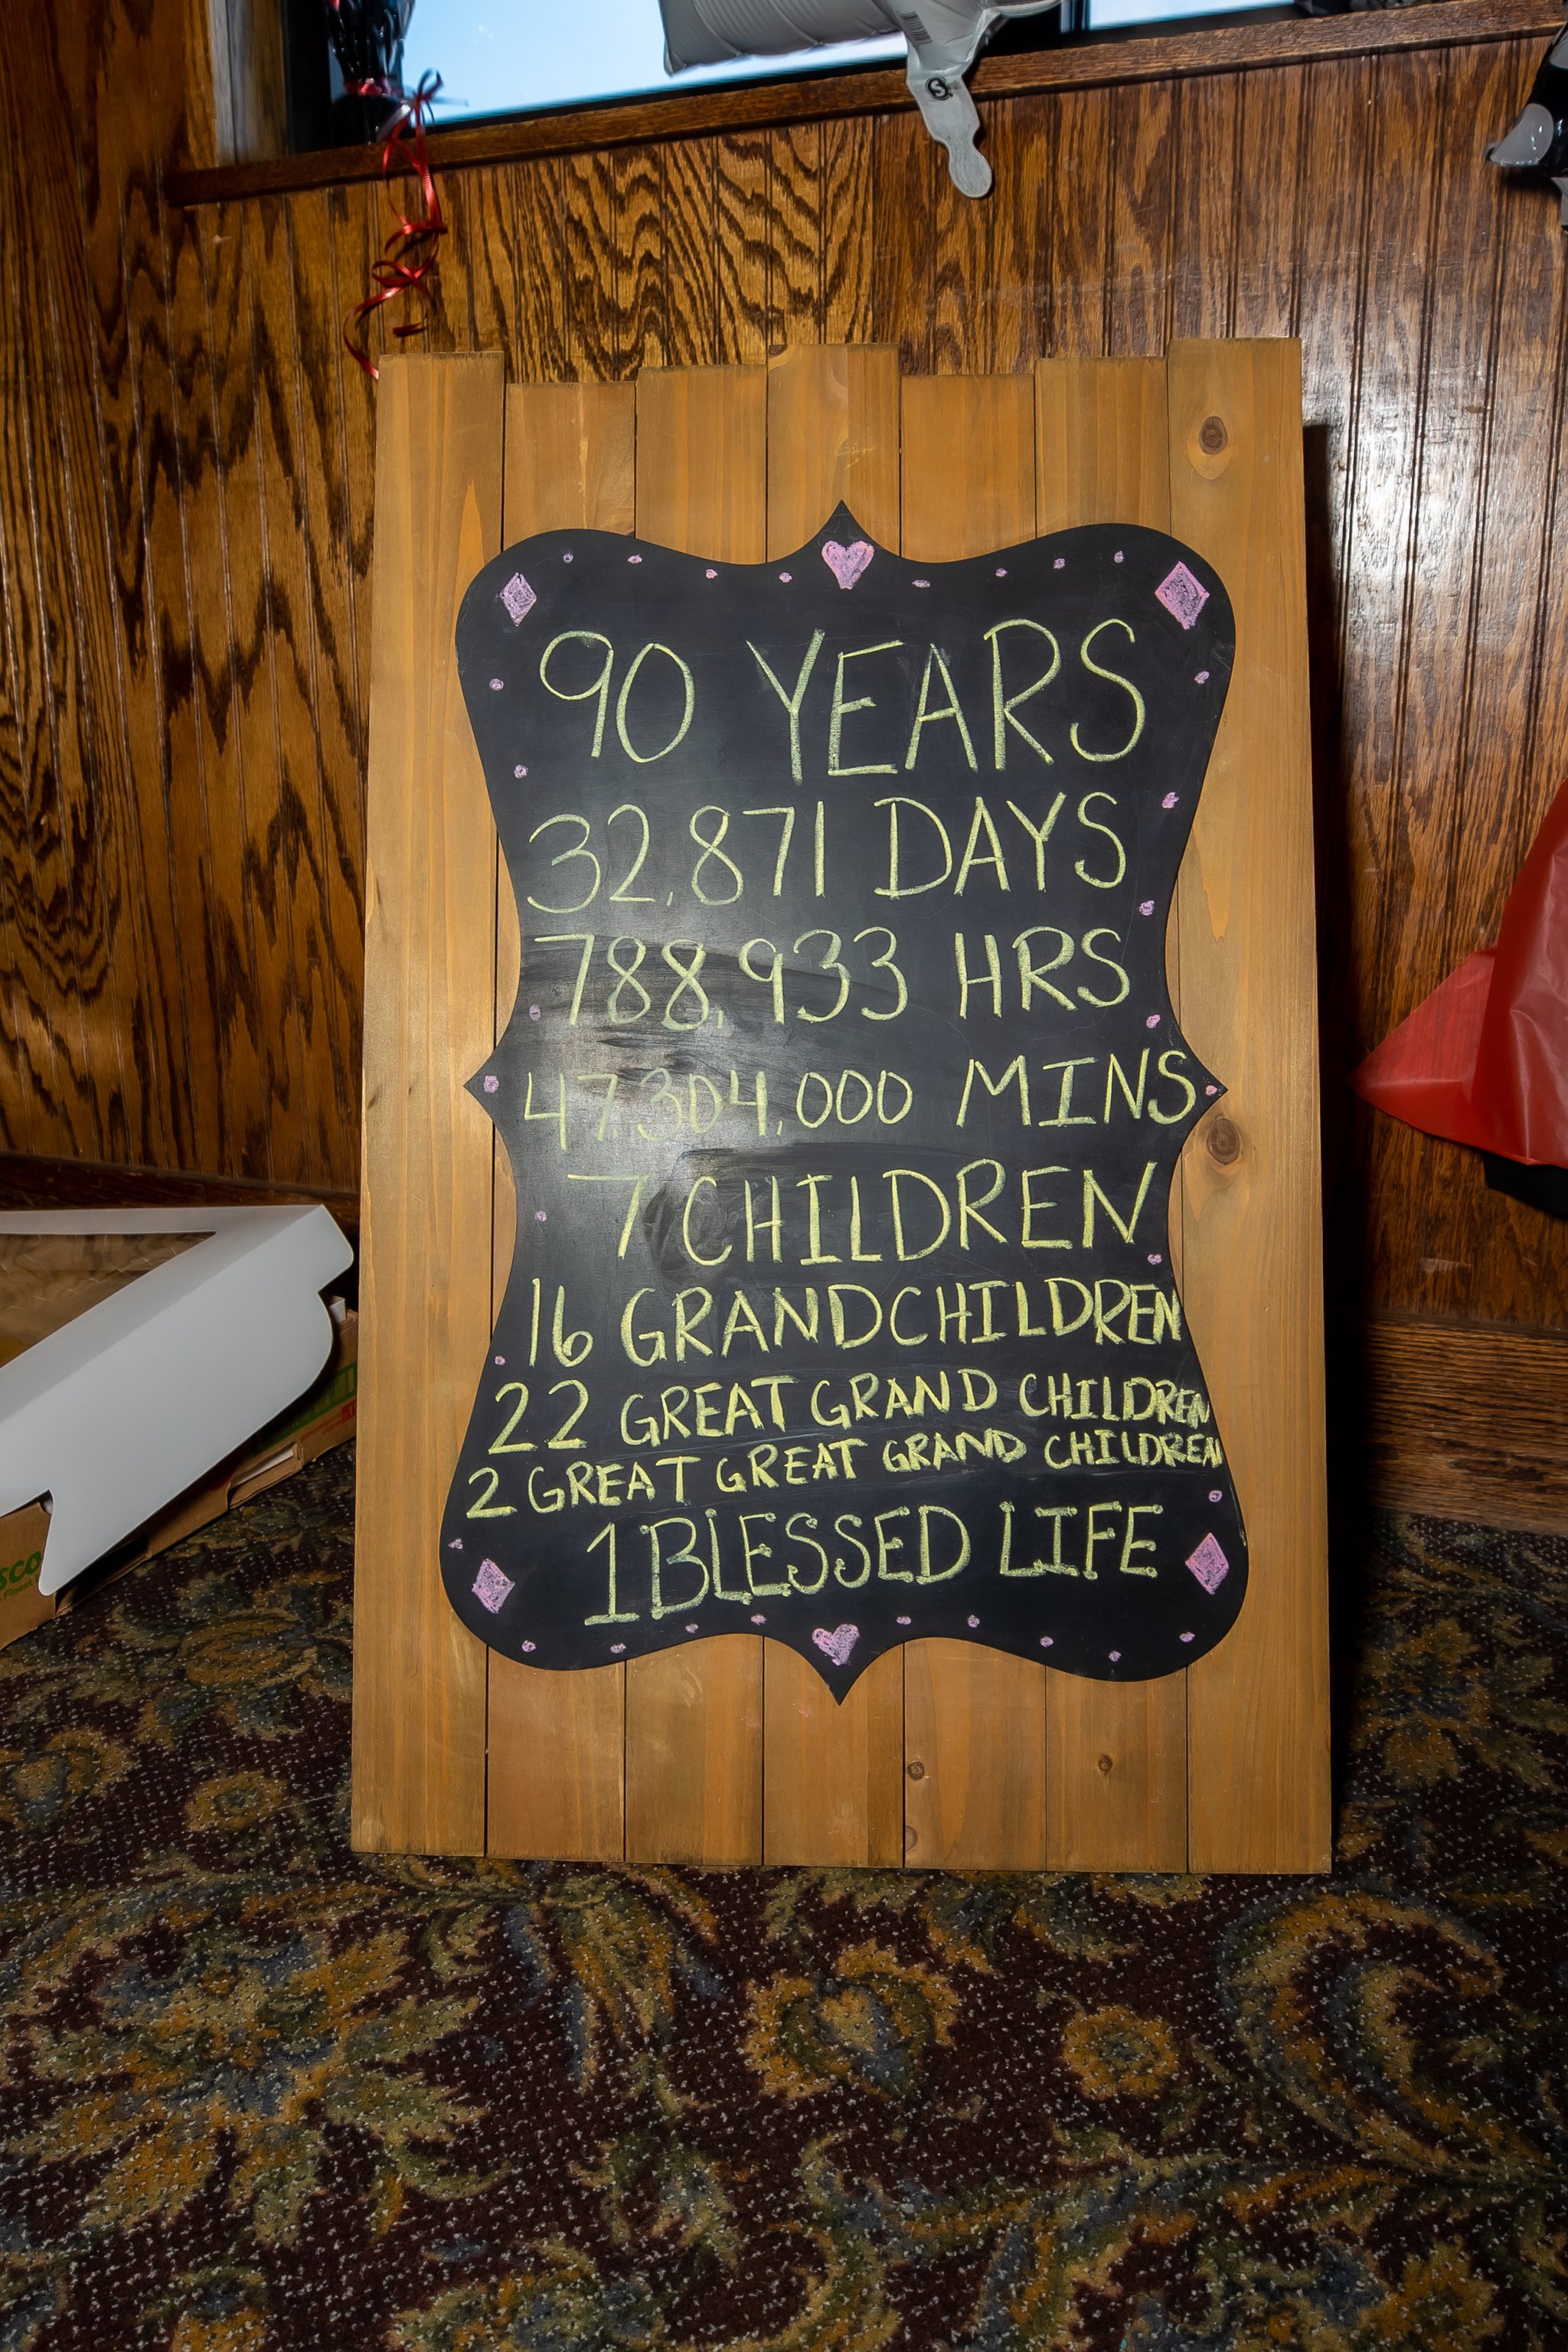 90 YEARS
32,871 DAYS
788,933 HRS
47,304,000 MINS
7 CHILDREN
16 GRANDCHILDREN
22 GREAT GRAND CHILDREN
2 GREAT GREAT GRAND CHILDREN
1 BLESSED LIFE